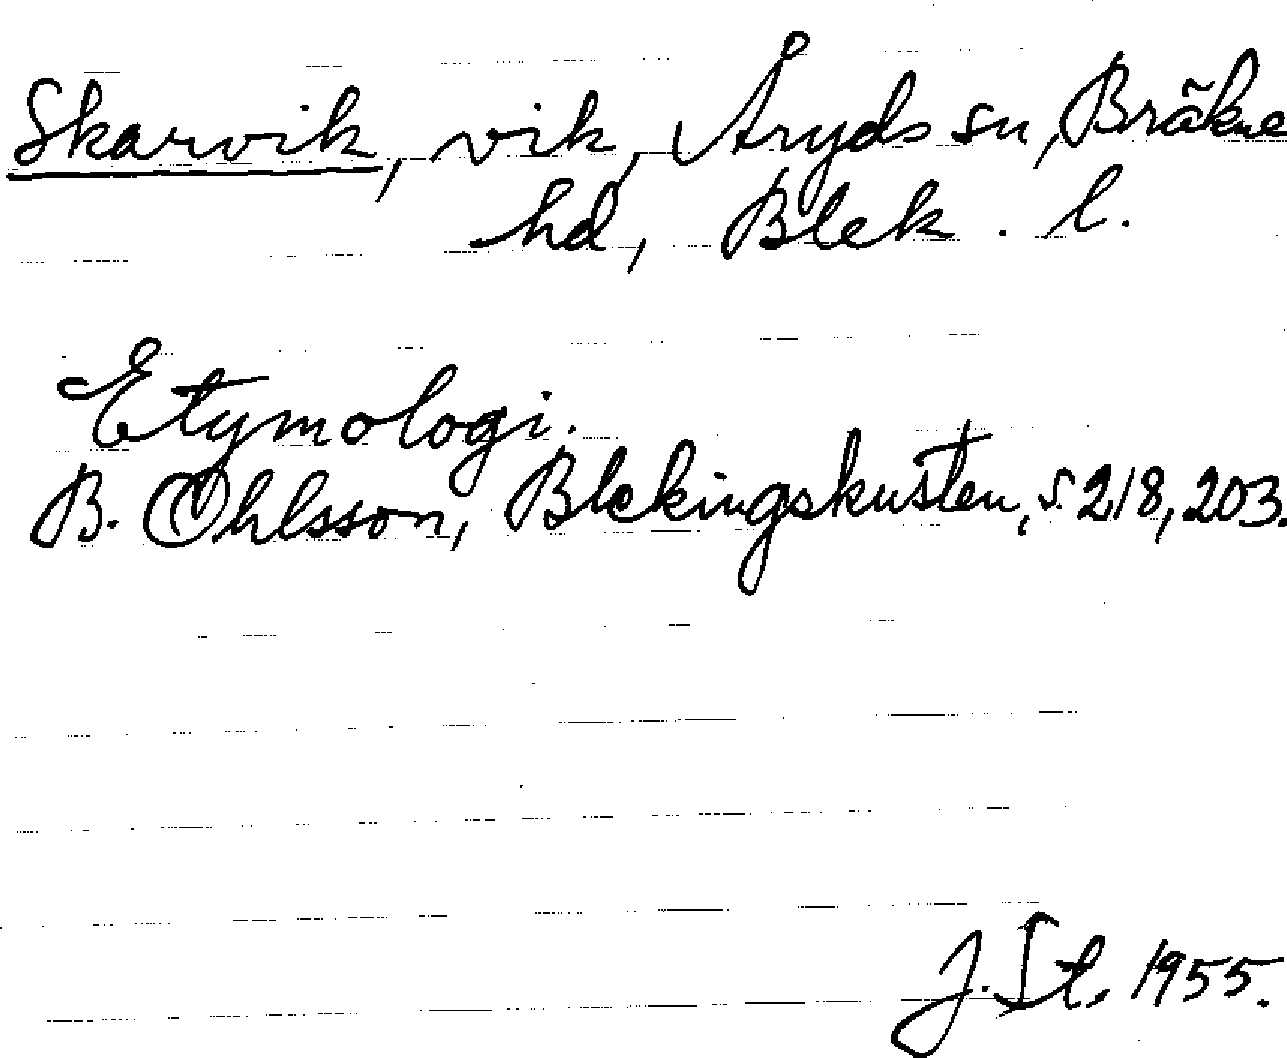 Skarvik, vik, Åryds sn, Bräkne
hd, Blek. l.
Etymologi.
B. Ohlsson, Blekingskusten, s 218, 203.
J. St. 1955.